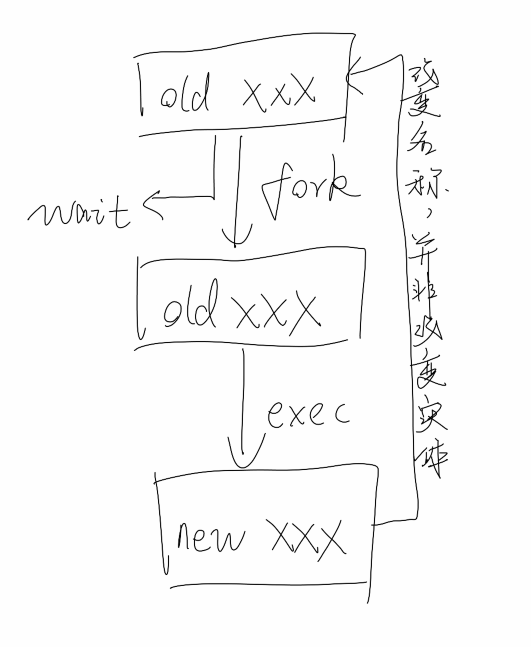 old xxx
fork
wait
old xxx
exec
new xxx
改变名称，并非改变实体